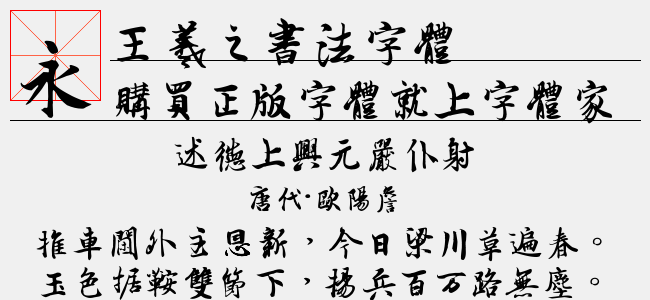 永
王羲之書法字體
購買正版字體就上字體家
述德上興元嚴仆射
唐代·歐陽詹
推車閫外主恩新，今日梁川草遍春。
玉色据鞍雙節下，揚兵百万路無塵。